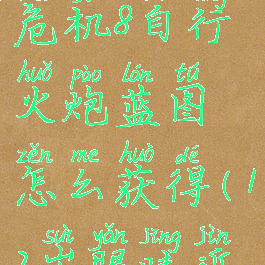 危机8自行
huǒ pào lán tú
火炮蓝图
zěn me huò dé
怎么获得(1
suì yǎn jīng jìn
岁眼睛近